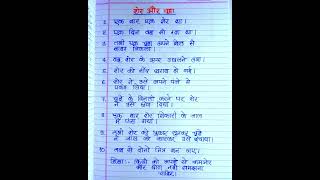 शेर और चूहा
1. एक बार एक शेर था।
2. एक दिन वह सो रहा था।
3. तभी एक चूहा अपने बिल से
बाहर निकला।
4. वह शेर के ऊपर उछलने लगा।
5. शेर की नींद खराब हो गई।
6. शेर ने उसे अपने पंजे में
पकड़ लिया।
7. चूहे के विनती करने पर शेर
ने उसे छोड़ दिया।
8. एक बार शेर शिकारी के जाल
में फंस गया।
9. शेर की सुनकर चूहे
ने जाल को काटकर उसे बचाया।
10. तब से दोनों मित्र बन गए।
शिक्षा:- किसी को अपने से कमजोर
और छोटा नहीं समझना
चाहिए।